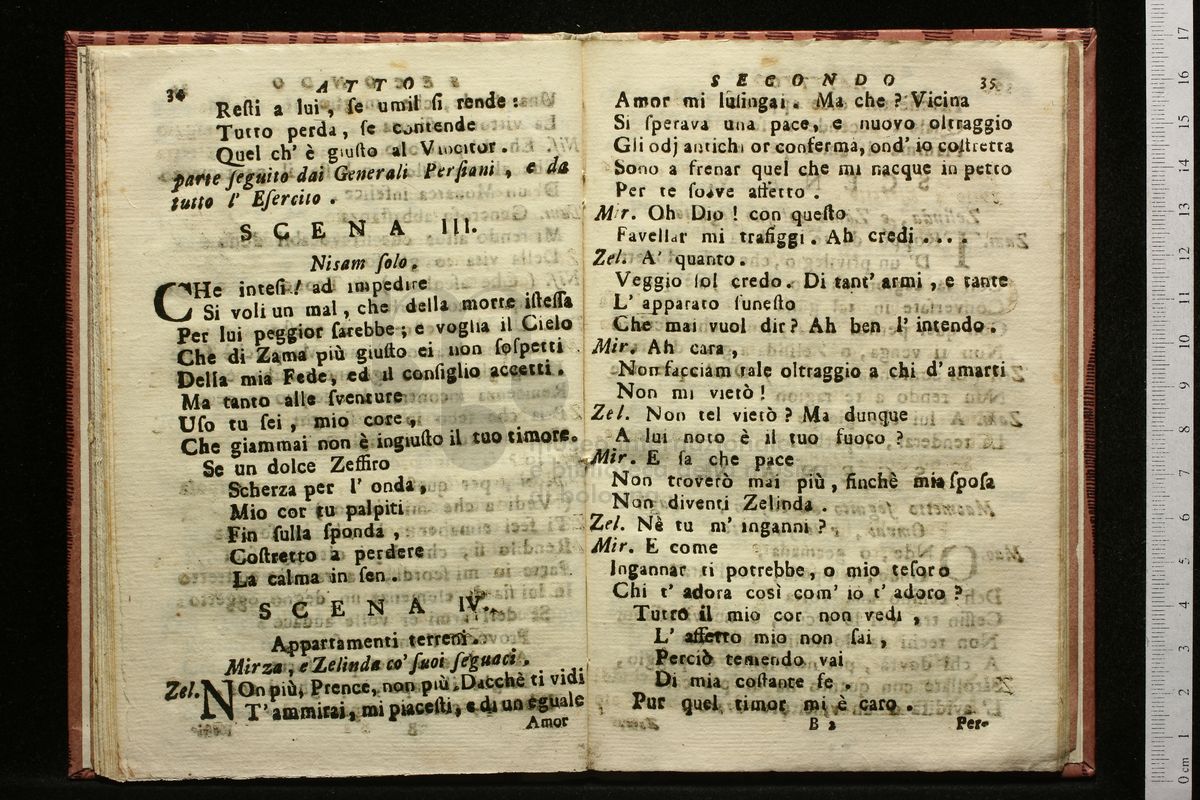 34
ATTO
Reſti a lui, ſe umil ſi rende:
Tutto perda, ſe contende
Quel ch' è giuſto al Vincitor.
parte ſeguito dai Generali Perſiani, e da
tutto l' Eſercito.
SCENA III.
Niſam ſolo.
CHe inteſi! ad impedire
Si voli un mal, che della morte iſteſſa
Per lui peggior ſarebbe; e voglia il Cielo
Che di Zama più giuſto ei non ſoſpetti
Della mia Fede, ed il conſiglio accetti.
Ma tanto alle ſventure
Uſo tu ſei, mio core,
Che giammai non è ingiuſto il tuo timore.
Se un dolce Zeffiro
Scherza per l' onda,
Mio cor tu palpiti
Fin ſulla ſponda,
Coſtretto a perdere
La calma in ſen.
SCENA IV.
Appartamenti terreni.
Mirza, e Zelinda co' ſuoi ſeguaci.
Zel. NOn più, Prence, non più. Dacchè ti vidi
T' ammirai, mi piaceſti, e di un eguale
Amor
SECONDO
35
Amor mi luſingai. Ma che? Vicina
Si ſperava una pace, e nuovo oltraggio
Gli odj antichi or conferma, ond' io coſtretta
Sono a frenar quel che mi nacque in petto
Per te ſoave affetto.
Mir. Oh Dio! con queſto
Favellar mi trafiggi. Ah credi....
Zel. A' quanto.
Veggio ſol credo. Di tant' armi, e tante
L' apparato funeſto
Che mai vuol dir? Ah ben l' intendo.
Mir. Ah cara,
Non facciam tale oltraggio a chi d' amarti
Non mi vietò!
Zel. Non tel vietò? Ma dunque
A lui noto è il tuo fuoco?
Mir. E ſa che pace
Non troverò mai più, finchè mia ſpoſa
Non diventi Zelinda.
Zel. Nè tu m' inganni?
Mir. E come
Ingannar ti potrebbe, o mio teſoro
Chi t' adora così com' io t' adoro?
Tutto il mio cor non vedi,
L' affetto mio non ſai,
Perciò temendo vai
Di mia coſtante fe.
Pur quel timor mi è caro.
B 2
Per-